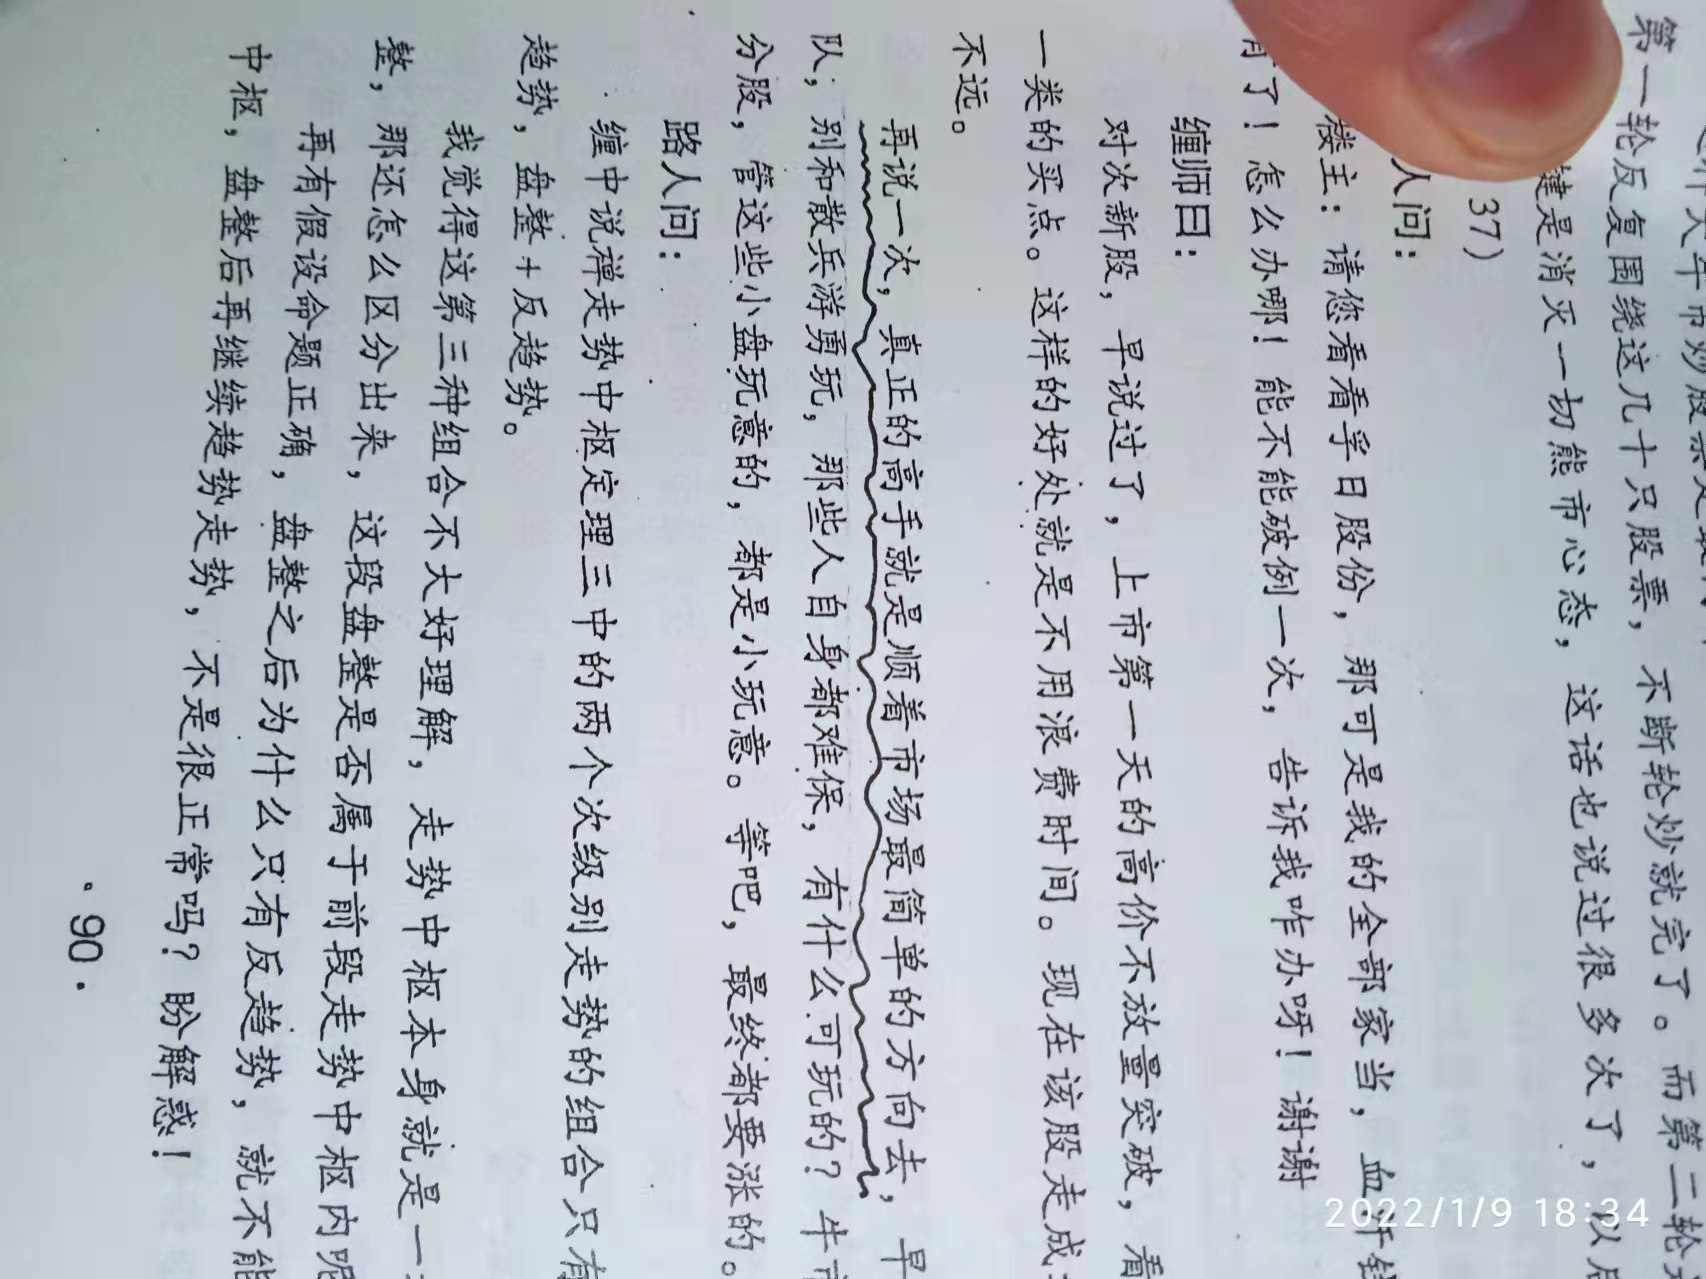 第一轮反复围绕这几十只股票，不断轮炒就完了。而第二轮
键是消灭一切熊市心态，这话也说过很多次了，以后
37）
人问：
楼主：请您看看孚日股份，那可是我的全部家当，血汗钱
了！怎么办哪！能不能破例一次，告诉我咋办呀！谢谢
缠师曰：
对次新股，早说过了，上市第一天的高价不放量突破，看
一类的买点。这样的好处就是不用浪费时间。现在该股走成
不远。
再说一次，真正的高手就是顺着市场最简单的方向去，早
队，别和散兵游勇玩，那些人自身都难保，有什么可玩的？牛市
分股，管这些小盘玩意的，都是小玩意。等吧，最终都要涨的。
路人问：
缠中说禅走势中枢定理三中的两个次级别走势的组合只有
趋势，盘整＋反趋势。
我觉得这第三种组合不大好理解，走势中枢本身就是一
整，那还怎么区分出来，这段盘整是否属于前段走势中枢内呢
再有假设命题正确，盘整之后为什么只有反趋势，就不能
中枢，盘整后再继续趋势走势，不是很正常吗？盼解惑！
·90·
2022/1/9 18:34